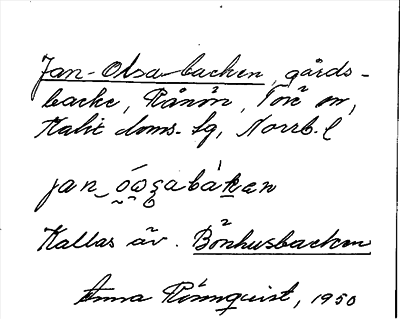 Jan-Olsabacken, gårds-
backe, Rånön, Töre sn,
Kalix doms. sg, Norrb. l
jan‿ó̰w̰ʒabàkæn
Kallas äv. Bönhusbacken
Anna Rönnquist, 1950